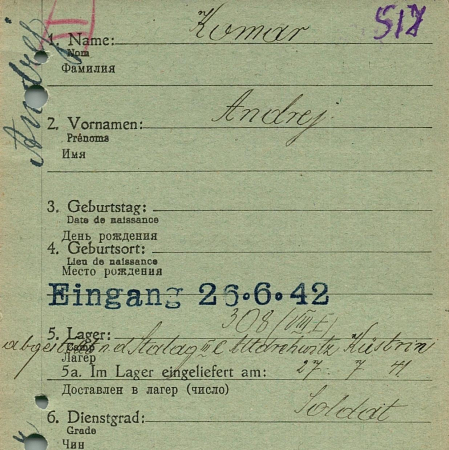 517
Andrej
1. Name: Komar
Nom
Фамилия
2. Vornamen: Andrej
Prénoms
Имя
3. Geburtstag:
Date de naissance
День рождения
4. Geburtsort:
Lieu de naissance
Место рождения
Eingang 26.6.42
5. Lager: 308 (VIII E)
Camp
Лагерь
Stalag III C Küstrin
5a. Im Lager eingeliefert am: 27. 7 41
Доставлен в лагерь (число)
6. Dienstgrad: Soldat
Grade
Чин